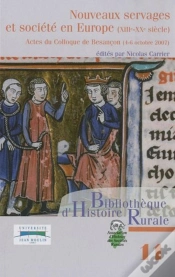 Nouveaux servages
et société en Europe (XIIIe-XXe siècle)
Actes du Colloque de Besançon (4-6 octobre 2007)
édités par Nicolas Carrier
Bibliothèque
d'Histoire
Rurale
UNIVERSITÉ
JEAN MOULIN